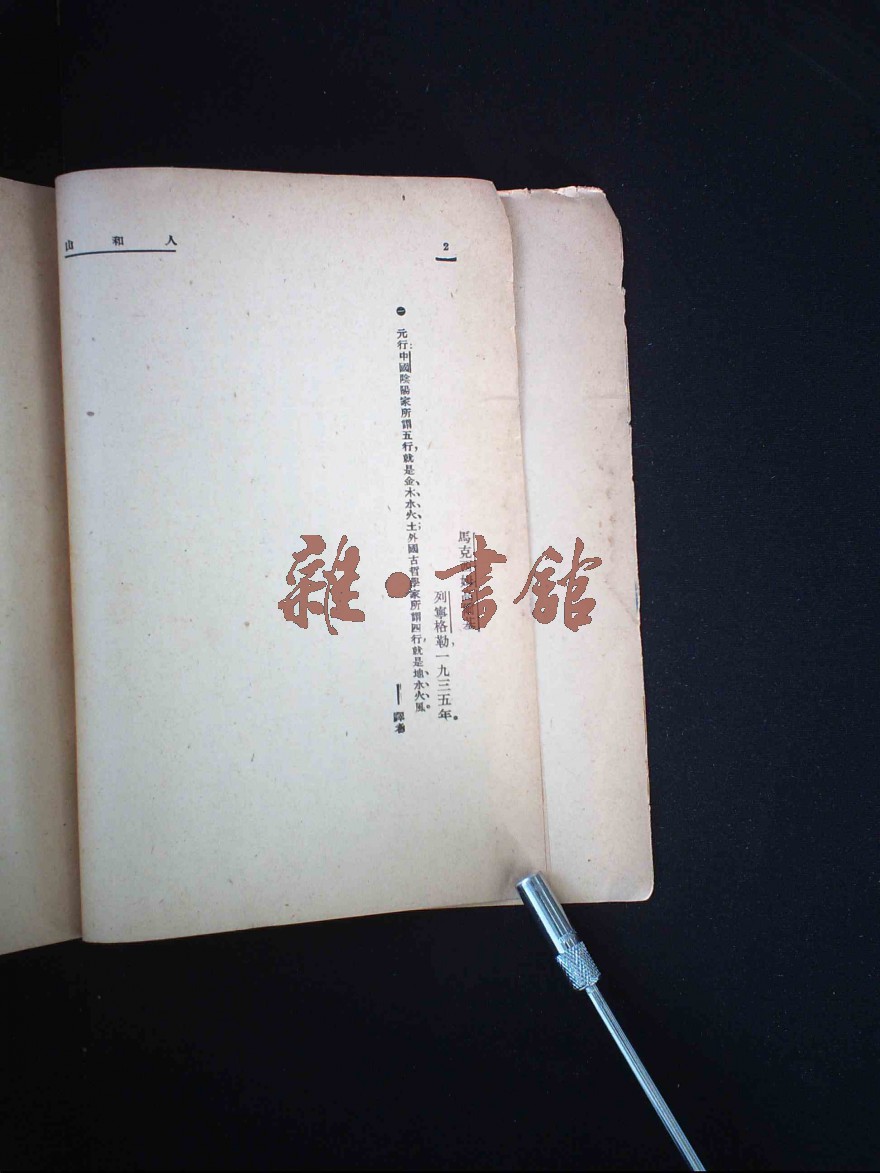 人和山
2
馬克西姆高爾基
列寧格勒，一九三五年。
㊀ 元行：中國陰陽家所謂五行，就是金、木、水、火、土；外國古哲學家所謂四行，就是地、水、火、風。
——譯者
雜·書館